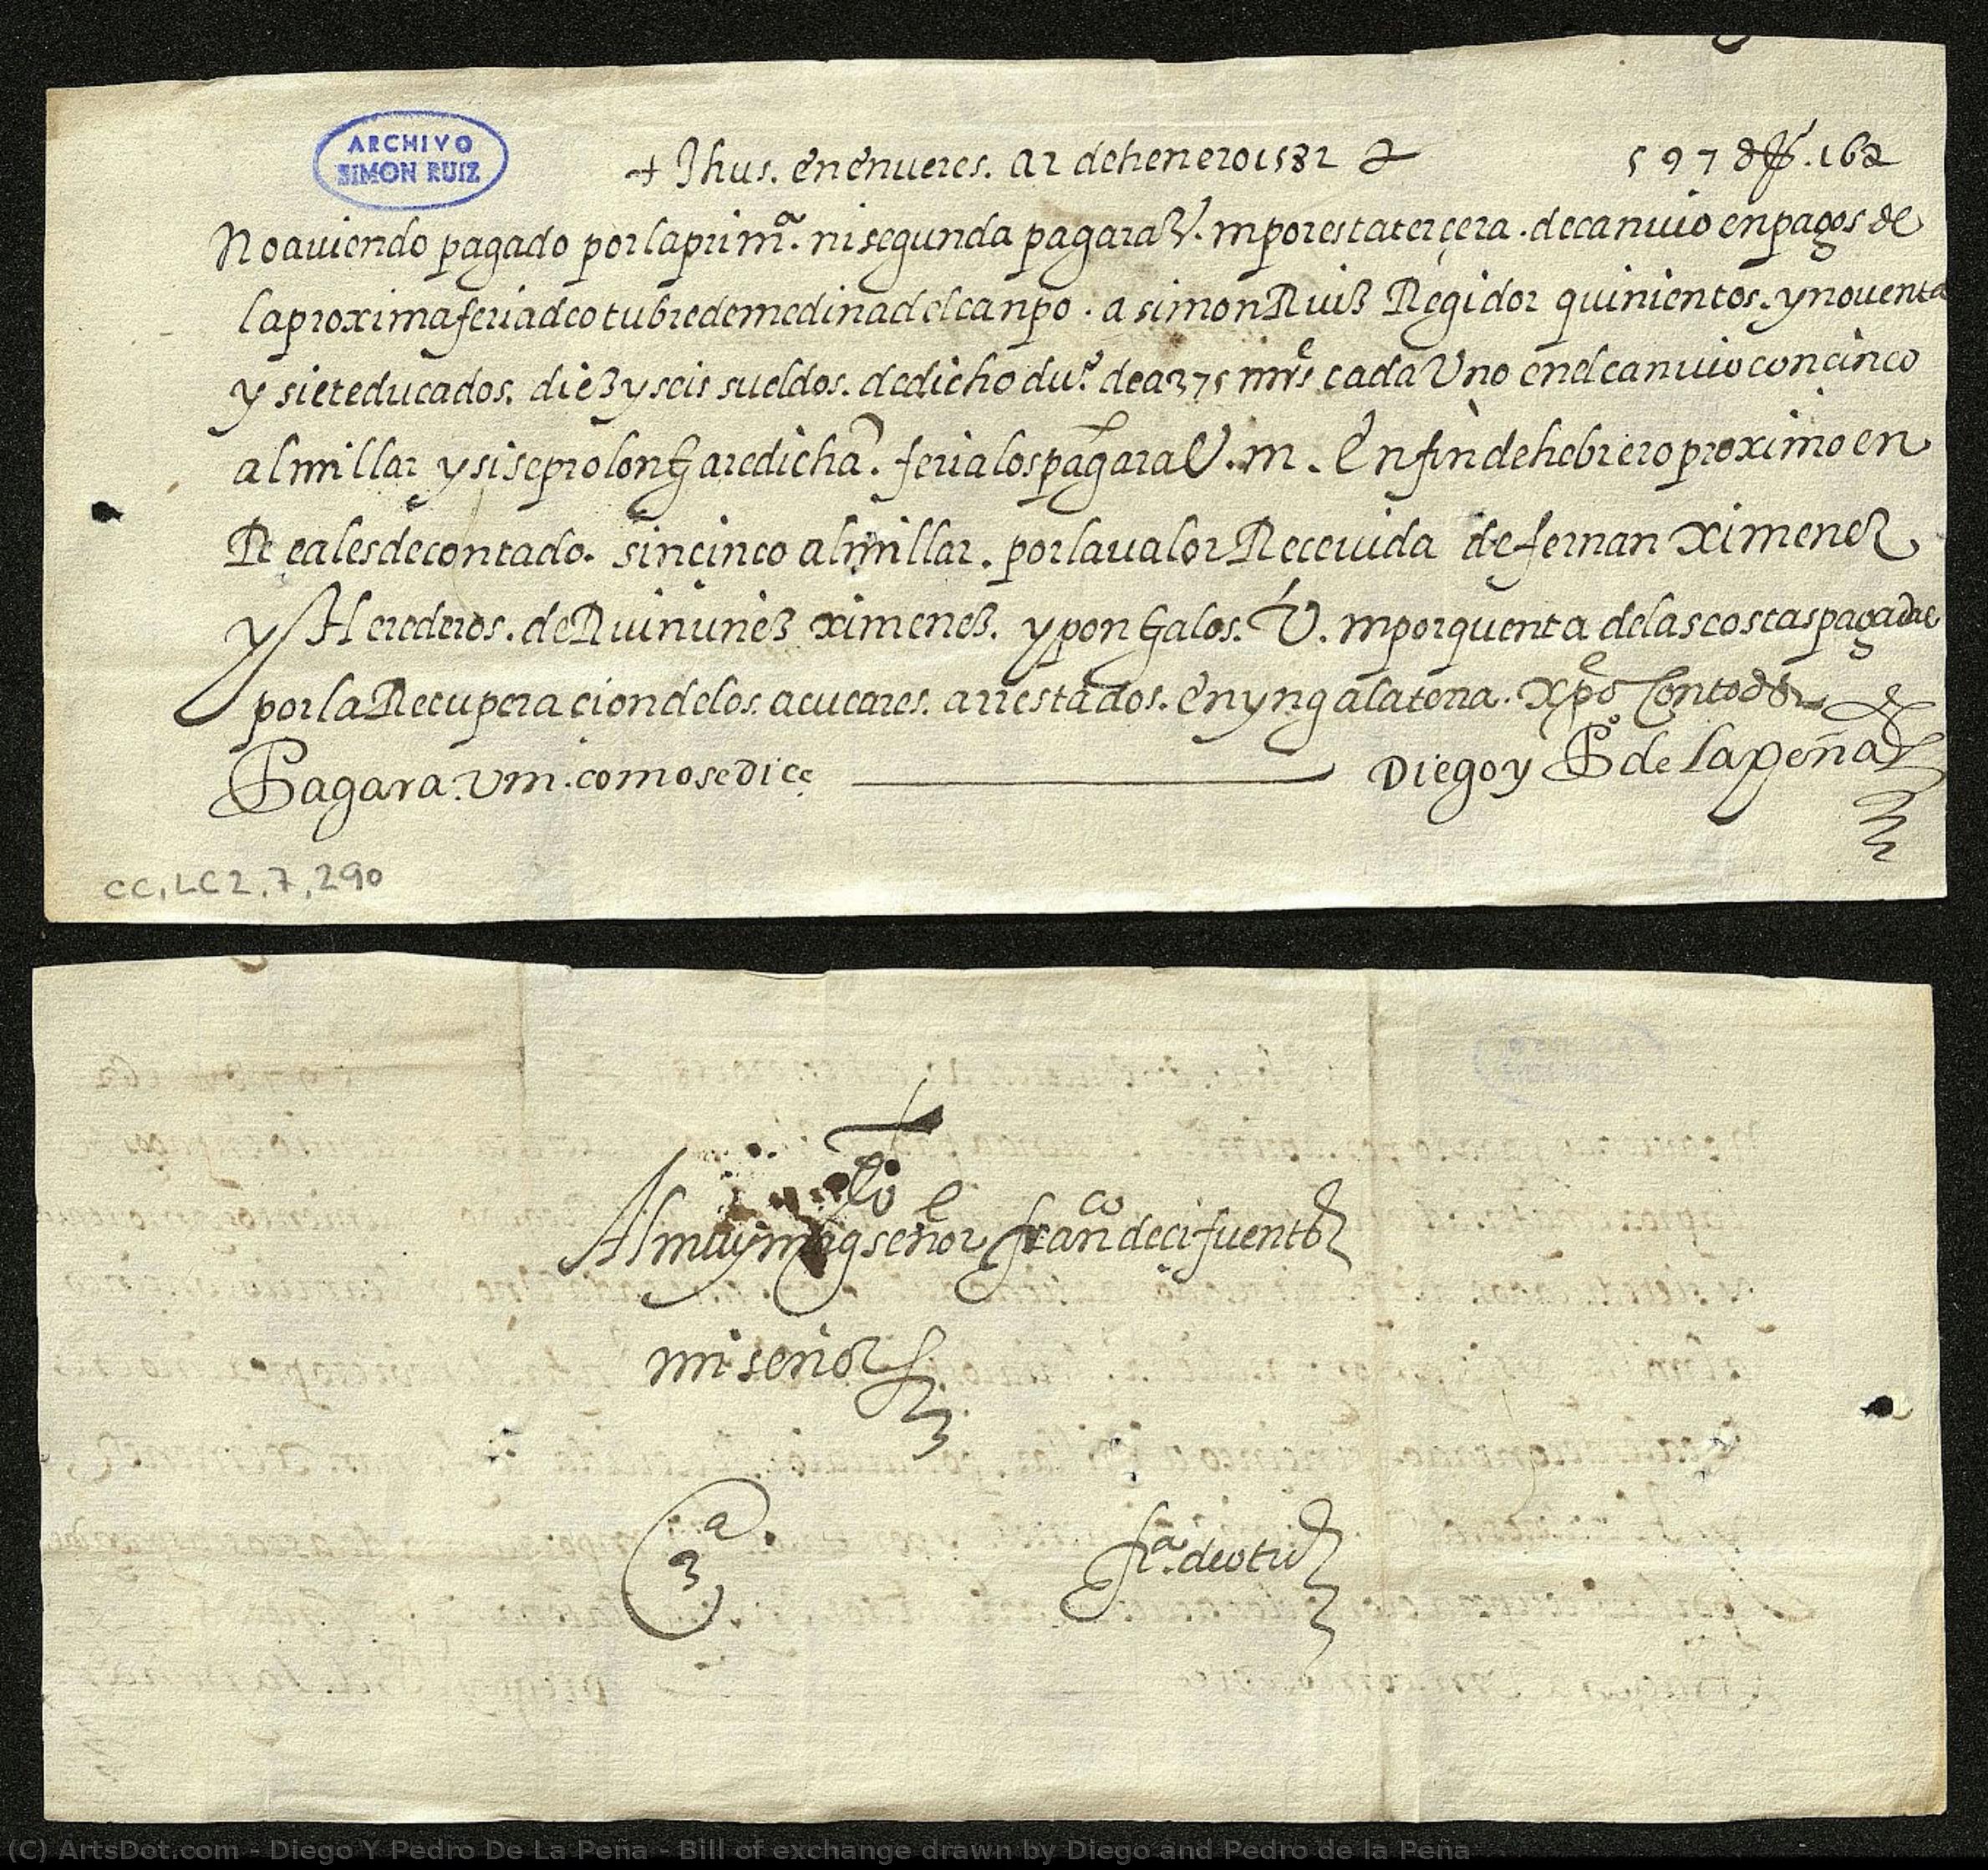 ARCHIVO
SIMON RUIZ
+ Jhus. en enueres. a 2 de henero 1582
597 ds. 16 s
No auiendo pagado por la prim.ª ni segunda pagara V. m por esta terçera. de canuio en pagos de
la proxima feria de otubre de medina del canpo. a simon Ruiz Regidor quinientos. y nouenta
y siete ducados. diez y seis sueldos. de dicho du.º de a 375 mrs cada Uno en el canuio con cinco
al millar y si se prolongare dicha. feria los pagara V. m. En fin de hebrero proximo en
Reales de contado. sin cinco al millar. por la ualor Receuida de fernan Ximenez
y Herederos. de Rui nunez ximenez. y pongalos. V. m por quenta de las costas pagadas
por la Recuperacion de los. acucares. arrestados. en yngalatera. Xpo Con todos
Pagara. V m. como se dice ——— Diego y Pº de la peña
CC, LC 2, 7, 290
Al muy mag.co señor franco de cifuentes
mi señor
3ª.
fª. de otu
(C) ArtsDot.com - Diego Y Pedro De La Peña - Bill of exchange drawn by Diego and Pedro de la Peña